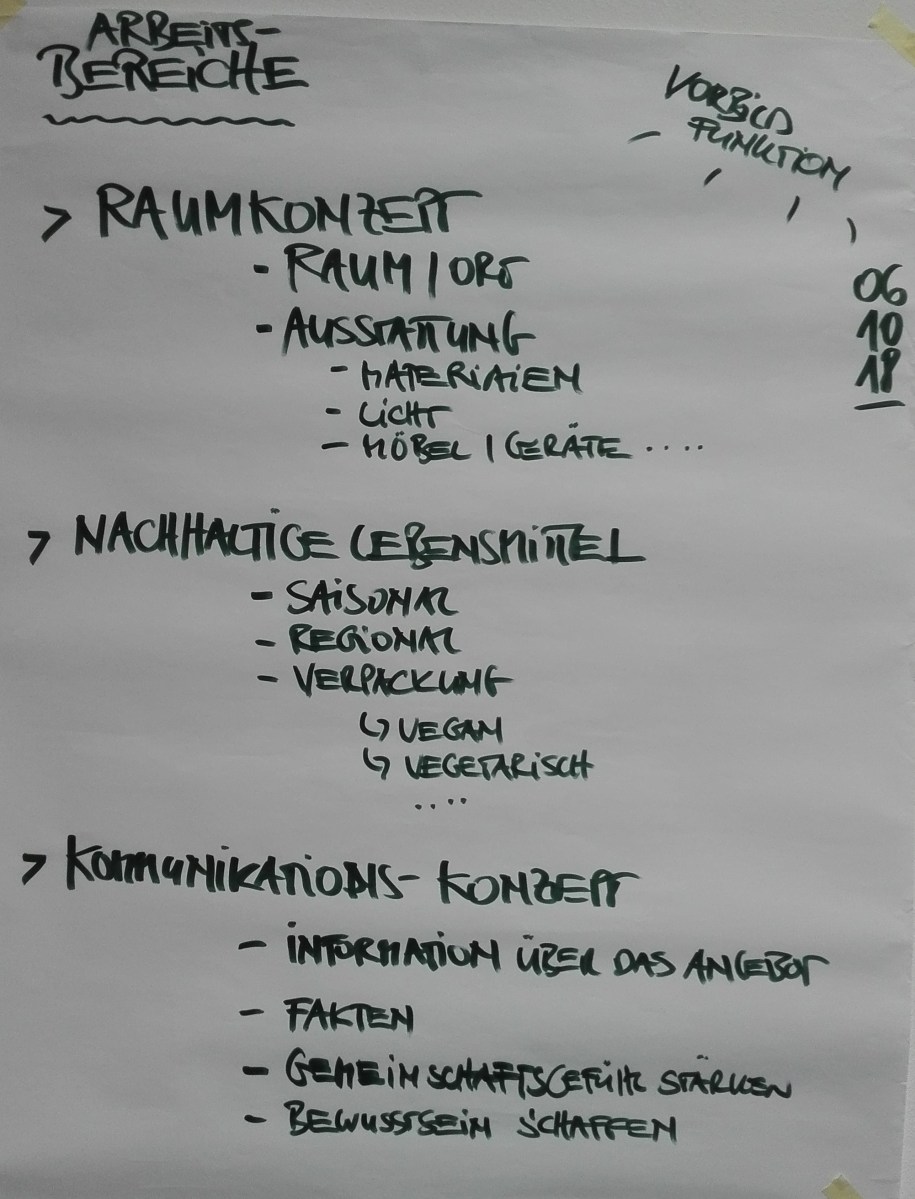 ARBEITS-
BEREICHE
VORBILD
FUNKTION
> RAUMKONZEPT
- RAUM / ORT
- AUSSTATTUNG
- MATERIALIEN
- LICHT
- MÖBEL / GERÄTE ....
06
10
18
> NACHHALTIGE LEBENSMITTEL
- SAISONAL
- REGIONAL
- VERPACKUNG
↳ VEGAN
↳ VEGETARISCH
....
> KOMMUNIKATIONS- KONZEPT
- INFORMATION ÜBER DAS ANGEBOT
- FAKTEN
- GEMEINSCHAFTSGEFÜHL STÄRKEN
- BEWUSSTSEIN SCHAFFEN